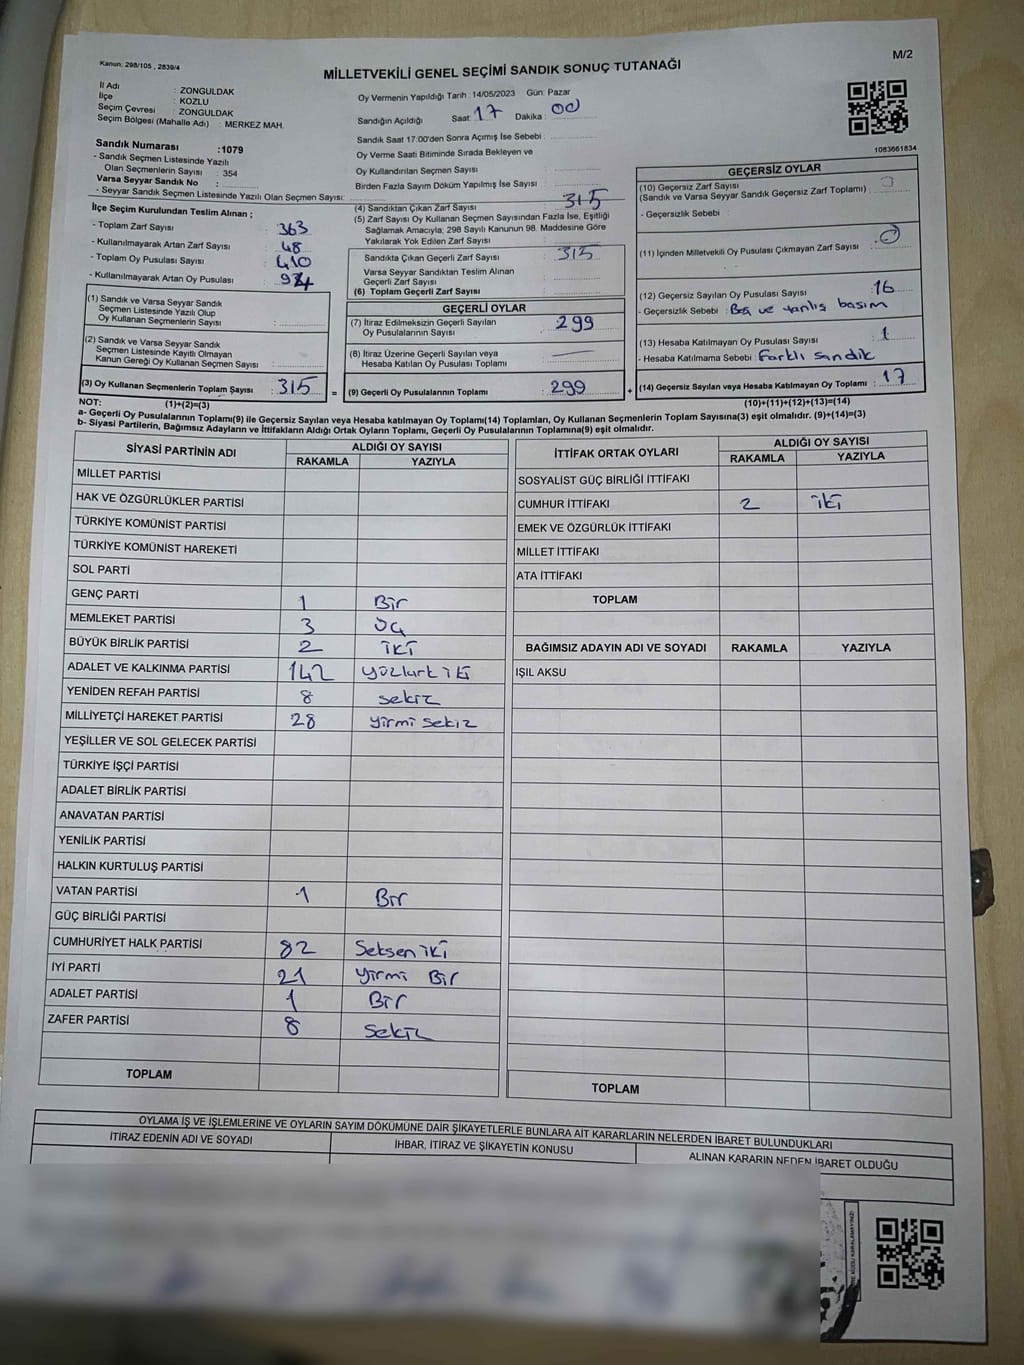 Kanun; 298/105 , 2839/4
MİLLETVEKİLİ GENEL SEÇİMİ SANDIK SONUÇ TUTANAĞI
M/2
İl Adı : ZONGULDAK
İlçe : KOZLU
Seçim Çevresi : ZONGULDAK
Seçim Bölgesi (Mahalle Adı) : MERKEZ MAH.
Oy Vermenin Yapıldığı Tarih : 14/05/2023 Gün: Pazar
Sandığın Açıldığı Saat 17 Dakika : 00
Sandık Saat 17:00'den Sonra Açımış İse Sebebi :
Oy Verme Saati Bitiminde Sırada Bekleyen ve
Oy Kullandırılan Seçmen Sayısı :
Birden Fazla Sayım Döküm Yapılmış İse Sayısı :
1083661834
Sandık Numarası :1079
- Sandık Seçmen Listesinde Yazılı
Olan Seçmenlerin Sayısı : 354
Varsa Seyyar Sandık No :
- Seyyar Sandık Seçmen Listesinde Yazılı Olan Seçmen Sayısı:
İlçe Seçim Kurulundan Teslim Alınan ;
- Toplam Zarf Sayısı : 363
- Kullanılmayarak Artan Zarf Sayısı : 48
- Toplam Oy Pusulası Sayısı : 410
- Kullanılmayarak Artan Oy Pusulası :
(1) Sandık ve Varsa Seyyar Sandık
Seçmen Listesinde Yazılı Olup
Oy Kullanan Seçmenlerin Sayısı :
(2) Sandık ve Varsa Seyyar Sandık
Seçmen Listesinde Kayıtlı Olmayan
Kanun Gereği Oy Kullanan Seçmen Sayısı :
(3) Oy Kullanan Seçmenlerin Toplam Sayısı : 315 =
(4) Sandıktan Çıkan Zarf Sayısı : 315
(5) Zarf Sayısı Oy Kullanan Seçmen Sayısından Fazla İse, Eşitliği
Sağlamak Amacıyla; 298 Sayılı Kanunun 98. Maddesine Göre
Yakılarak Yok Edilen Zarf Sayısı :
Sandıkta Çıkan Geçerli Zarf Sayısı : 315
Varsa Seyyar Sandıktan Teslim Alınan
Geçerli Zarf Sayısı :
(6) Toplam Geçerli Zarf Sayısı :
GEÇERLİ OYLAR
(7) İtiraz Edilmeksizin Geçerli Sayılan
Oy Pusulalarının Sayısı : 299
(8) İtiraz Üzerine Geçerli Sayılan veya
Hesaba Katılan Oy Pusulaları Toplamı : —
(9) Geçerli Oy Pusulalarının Toplamı : 299 +
GEÇERSİZ OYLAR
(10) Geçersiz Zarf Sayısı :
(Sandık ve Varsa Seyyar Sandık Geçersiz Zarf Toplamı)
- Geçersizlik Sebebi :
(11) İçinden Milletvekili Oy Pusulası Çıkmayan Zarf Sayısı : 0
(12) Geçersiz Sayılan Oy Pusulası Sayısı : 16
- Geçersizlik Sebebi : Boş ve yanlış basım
(13) Hesaba Katılmayan Oy Pusulası Sayısı : 1
- Hesaba Katılmama Sebebi : Farklı sandık
(14) Geçersiz Sayılan veya Hesaba Katılmayan Oy Toplamı : 17
NOT: (1)+(2)=(3)
(10)+(11)+(12)+(13)=(14)
a- Geçerli Oy Pusulalarının Toplamı(9) ile Geçersiz Sayılan veya Hesaba katılmayan Oy Toplamı(14) Toplamları, Oy Kullanan Seçmenlerin Toplam Sayısına(3) eşit olmalıdır. (9)+(14)=(3)
b- Siyasi Partilerin, Bağımsız Adayların ve İttifakların Aldığı Ortak Oyların Toplamı, Geçerli Oy Pusulalarının Toplamına(9) eşit olmalıdır.
SİYASİ PARTİNİN ADI ALDIĞI OY SAYISI
RAKAMLA YAZIYLA
MİLLET PARTİSİ
HAK VE ÖZGÜRLÜKLER PARTİSİ
TÜRKİYE KOMÜNİST PARTİSİ
TÜRKİYE KOMÜNİST HAREKETİ
SOL PARTİ
GENÇ PARTİ 1 Bir
MEMLEKET PARTİSİ 3 Üç
BÜYÜK BİRLİK PARTİSİ 2 iki
ADALET VE KALKINMA PARTİSİ 142 yüzkırk iki
YENİDEN REFAH PARTİSİ 8 sekiz
MİLLİYETÇİ HAREKET PARTİSİ 28 yirmi sekiz
YEŞİLLER VE SOL GELECEK PARTİSİ
TÜRKİYE İŞÇİ PARTİSİ
ADALET BİRLİK PARTİSİ
ANAVATAN PARTİSİ
YENİLİK PARTİSİ
HALKIN KURTULUŞ PARTİSİ
VATAN PARTİSİ 1 Bir
GÜÇ BİRLİĞİ PARTİSİ
CUMHURİYET HALK PARTİSİ 82 Seksen iki
İYİ PARTİ 21 yirmi Bir
ADALET PARTİSİ 1 Bir
ZAFER PARTİSİ 8 sekiz
TOPLAM
İTTİFAK ORTAK OYLARI ALDIĞI OY SAYISI
RAKAMLA YAZIYLA
SOSYALİST GÜÇ BİRLİĞİ İTTİFAKI
CUMHUR İTTİFAKI 2 iki
EMEK VE ÖZGÜRLÜK İTTİFAKI
MİLLET İTTİFAKI
ATA İTTİFAKI
TOPLAM
BAĞIMSIZ ADAYIN ADI VE SOYADI RAKAMLA YAZIYLA
IŞIL AKSU
TOPLAM
OYLAMA İŞ VE İŞLEMLERİNE VE OYLARIN SAYIM DÖKÜMÜNE DAİR ŞİKAYETLERLE BUNLARA AİT KARARLARIN NELERDEN İBARET BULUNDUKLARI
İTİRAZ EDENİN ADI VE SOYADI İHBAR, İTİRAZ VE ŞİKAYETİN KONUSU ALINAN KARARIN NEDEN İBARET OLDUĞU